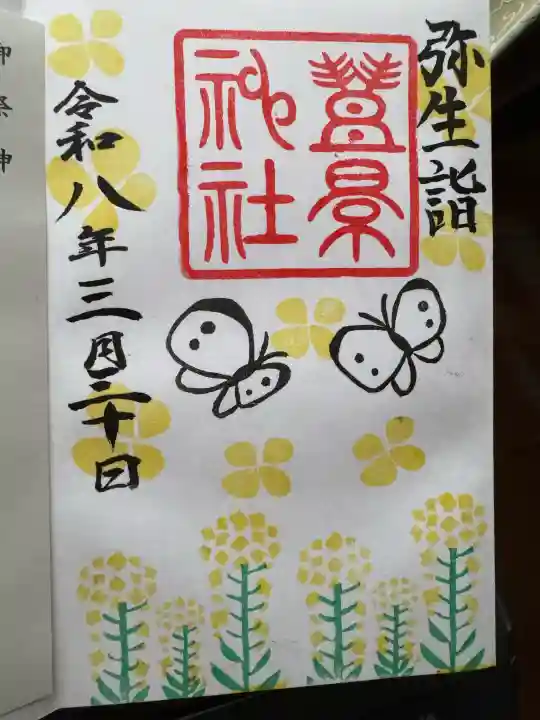 弥生詣
豊景
神社
令和八年三月二十日
御祭神